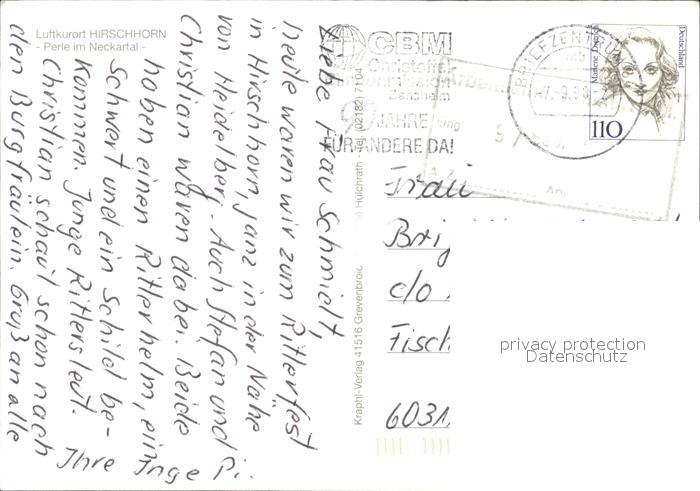 Luftkurort HIRSCHHORN
- Perle im Neckartal -
Liebe Frau Schmielt,
heute waren wir zum Ritterfest
in Hirschhorn, ganz in der Nähe
von Heidelberg. Auch Stefan und
Christian waren dabei. Beide
haben einen Ritterhelm, ein
Schwert und ein Schild be-
kommen. Junge Rittersleut.
Christian schaut schon nach
den Burgfräulein. Gruß an alle
Ihre Inge
Kraphl-Verlag 41516 Grevenbroic
Hülchrath - Tel. (02182) 7104
CBM
Christoffel
Bensheim
90 JAHRE
FÜR ANDERE DA!
BRIEFZENTRUM
mb
-7.-9.98
Deutschland
Marlene Dietrich
110
Frau
Brig
c/o
Fisch
6031
privacy protection
Datenschutz